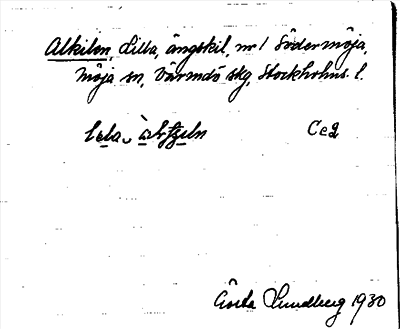 Alkilen, Lilla, ängskil, nr 1 Södermöja,
Möja sn, Värmdö skg, Stockholms l.
Ce2
Gösta Lundberg 1930